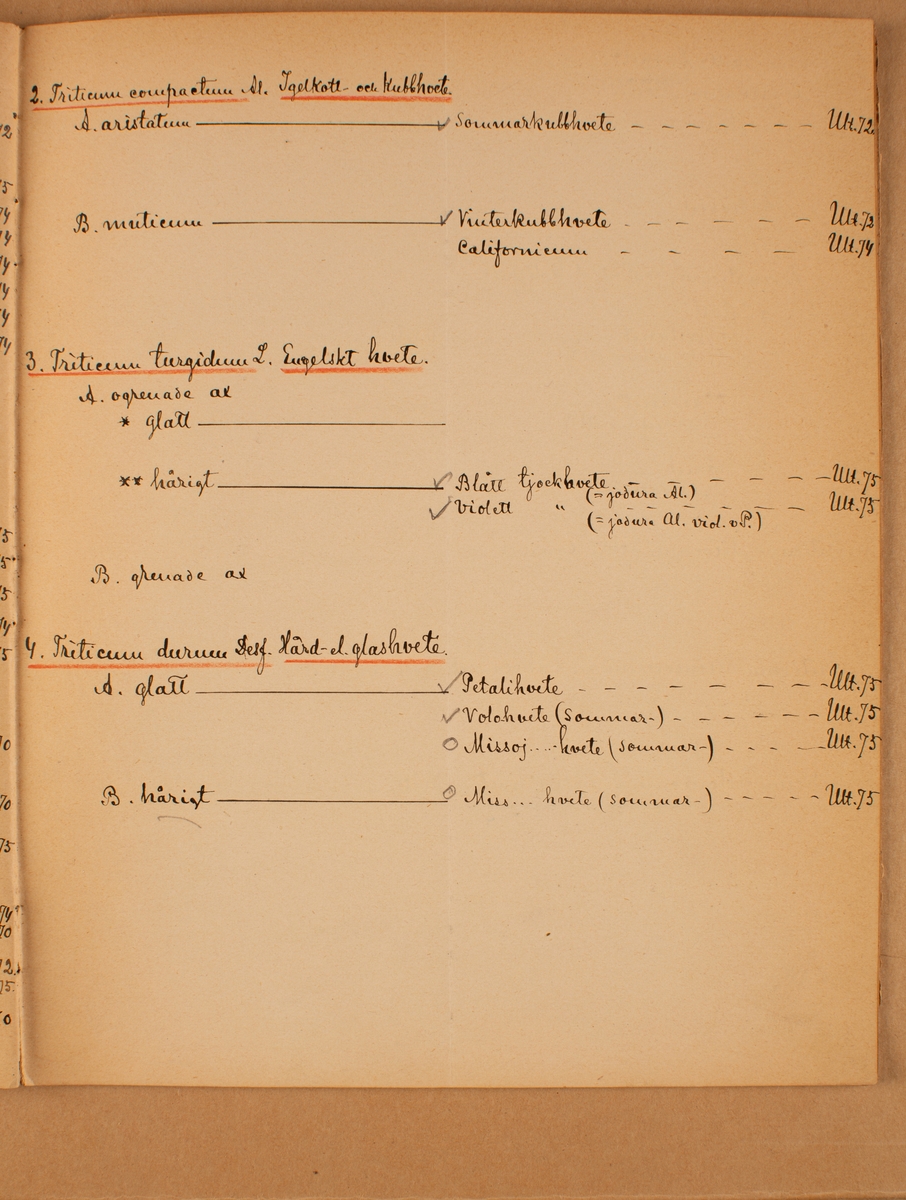 2. Triticum compactum Al. Igelkott- och Kubbhvete.
A. aristatum ✓ Sommarkubbhvete - - - - - - - Ult. 72
B. muticum ✓ Vinterkubbhvete - - - - - Ult. 72
Californicum - - - - Ult. 74
3. Triticum turgidum L. Engelskt hvete.
A. ogrenade ax
* glatt
** hårigt ✓ Blått tjockhvete - - - - Ult. 75
(= jodura Al.)
✓ Violett " - - - - Ult. 75
(= jodura Al. viol. v P.)
B. grenade ax
4. Triticum durum Desf. Hård- el. glashvete.
A. glatt ✓ Petalihvete - - - - - - - Ult. 75
✓ Volohvete (Sommar-) - - - - - - Ult. 75
O Missoj.....hvete (Sommar-) - - - - Ult. 75
B. hårigt O Miss... hvete (Sommar-) - - - - - Ult. 75
12
75
74
74
74
74
74
74
75
75
75
74
75
70
70
75
74
70
12.
75.